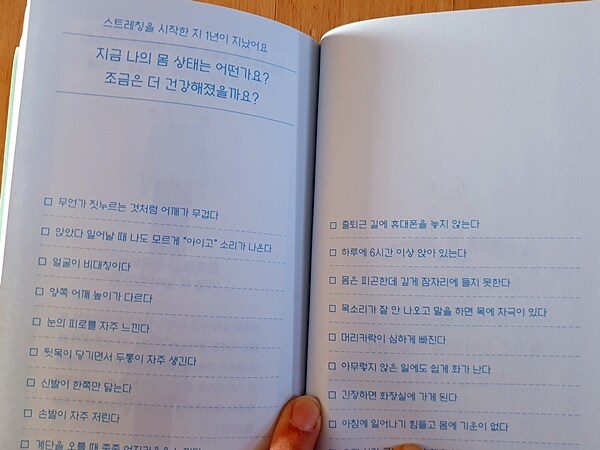 스트레칭을 시작한 지 1년이 지났어요
지금 나의 몸 상태는 어떤가요?
조금은 더 건강해졌을까요?
□ 무언가 짓누르는 것처럼 어깨가 무겁다
□ 앉았다 일어날 때 나도 모르게 “아이고” 소리가 나온다
□ 얼굴이 비대칭이다
□ 양쪽 어깨 높이가 다르다
□ 눈의 피로를 자주 느낀다
□ 뒷목이 당기면서 두통이 자주 생긴다
□ 신발이 한쪽만 닳는다
□ 손발이 자주 저린다
□ 계단을 오를 때
□ 출퇴근 길에 휴대폰을 놓지 않는다
□ 하루에 6시간 이상 앉아 있는다
□ 몸은 피곤한데 깊게 잠자리에 들지 못한다
□ 목소리가 잘 안 나오고 말을 하면 목에 자극이 있다
□ 머리카락이 심하게 빠진다
□ 아무렇지 않은 일에도 쉽게 화가 난다
□ 긴장하면 화장실에 가게 된다
□ 아침에 일어나기 힘들고 몸에 기운이 없다